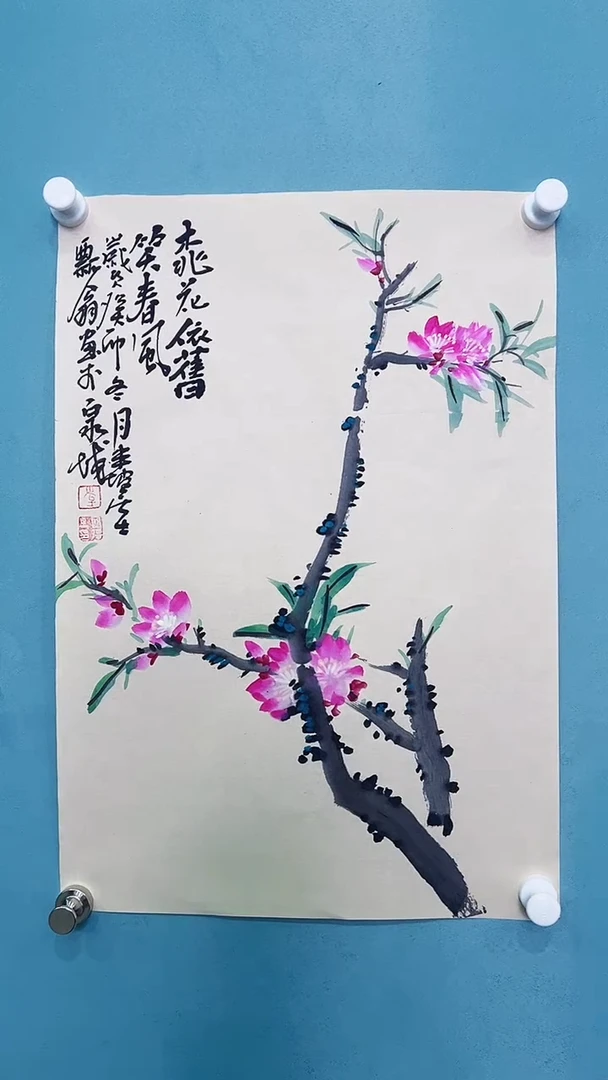 桃花依舊
笑春風
歲次癸卯冬月
翁画於泉城